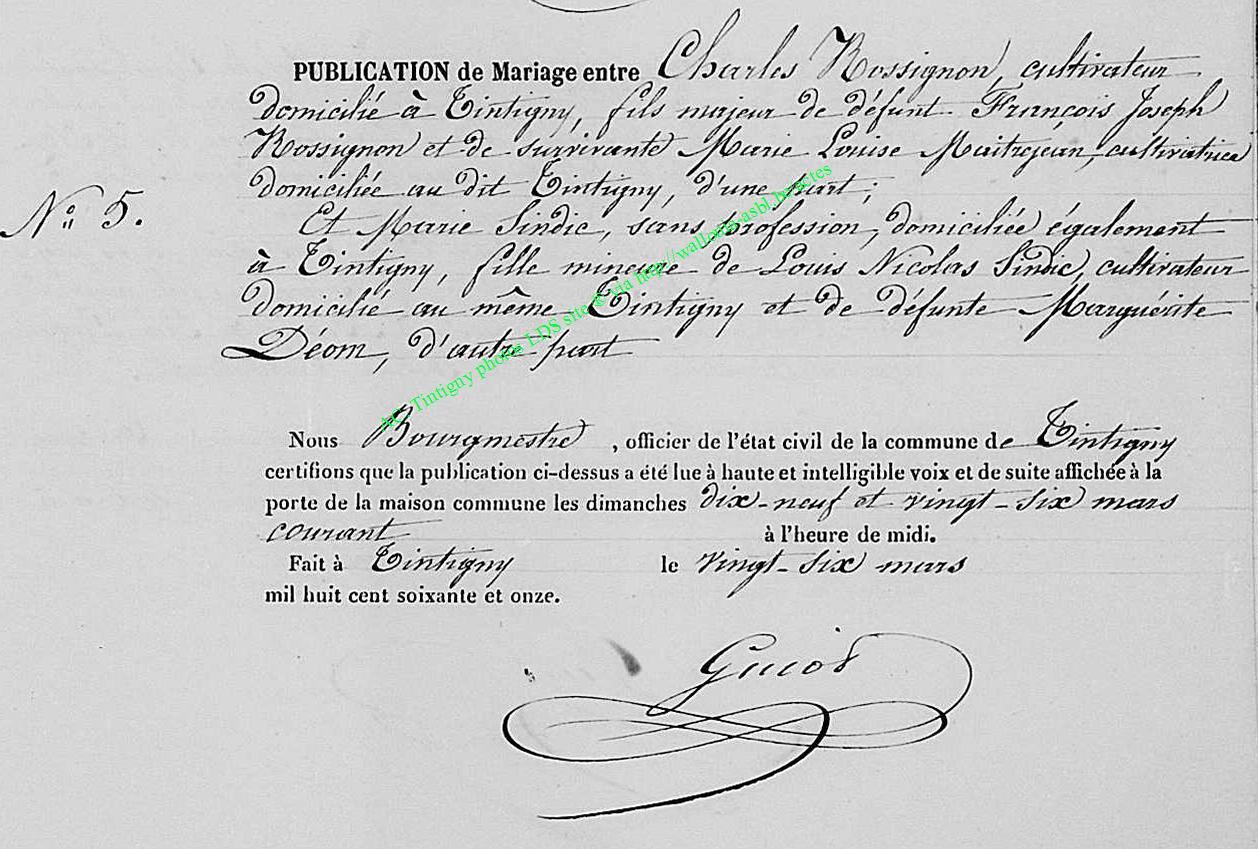 PUBLICATION de Mariage entre Charles Rossignon, cultivateur
domicilié à Tintigny, fils majeur de défunt François Joseph
Rossignon et de survivante Marie Louise Maitrejean, cultivatrice
domiciliée au dit Tintigny, d'une part;
N° 5.
Et Marie Sindic, sans profession, domiciliée également
à Tintigny, fille mineure de Louis Nicolas Sindic, cultivateur
domicilié au même Tintigny et de défunte Marguérite
Déom, d'autre part
AC Tintigny photos LDS site @ via http://wallonia-asbl.be/actes
Nous Bourgmestre, officier de l'état civil de la commune de Tintigny
certifions que la publication ci-dessus a été lue à haute et intelligible voix et de suite affichée à la
porte de la maison commune les dimanches dix-neuf et vingt-six mars
courant à l'heure de midi.
Fait à Tintigny le vingt-six mars
mil huit cent soixante et onze.